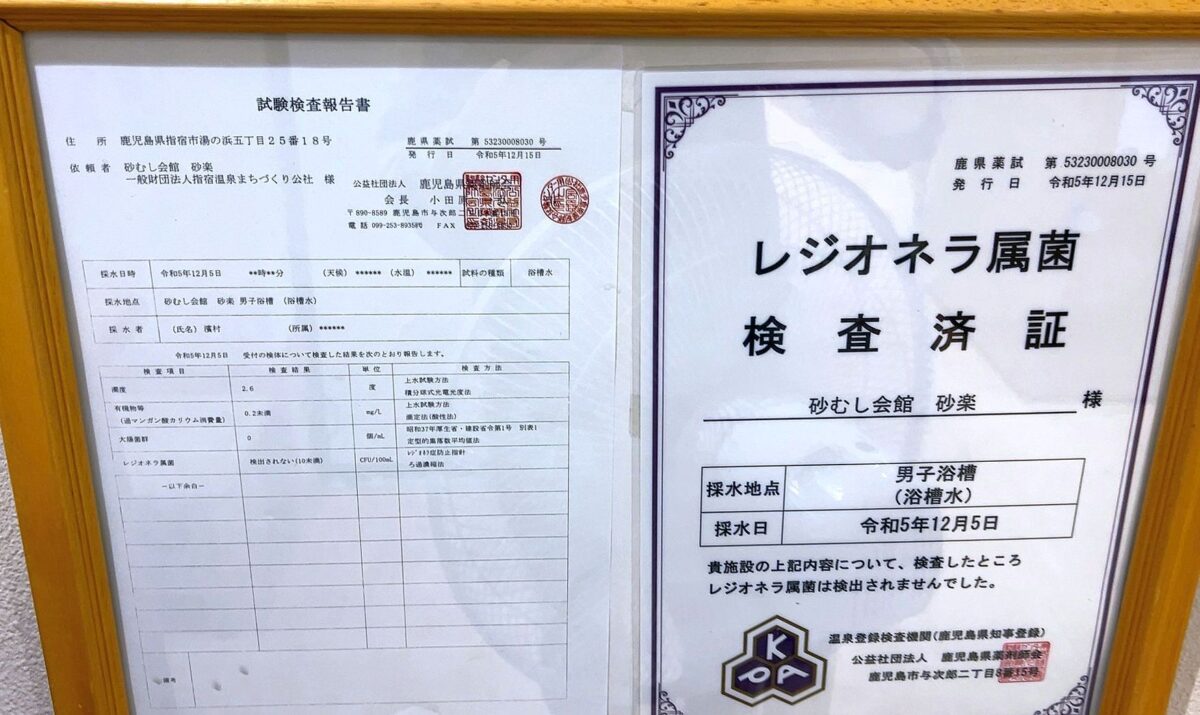 試験検査報告書
住 所 鹿児島県指宿市湯の浜五丁目25番18号
鹿県薬試 第 53230008030 号
発 行 日 令和5年12月15日
依 頼 者 砂むし会館 砂楽
一般財団法人指宿温泉まちづくり公社 様
公益社団法人 鹿児島県
会 長 小田原
〒890-8589 鹿児島市与次郎二丁目
電 話 099-253-8935㈹ FAX
採水日時 令和5年12月5日 **時**分 (天候) ****** (水温) ****** 試料の種類 浴槽水
採水地点 砂むし会館 砂楽 男子浴槽 (浴槽水)
採 水 者 (氏名) 濱村 (所属) ******
令和5年12月5日 受付の検体について検査した結果を次のとおり報告します。
検 査 項 目 検 査 結 果 単 位 検 査 方 法
濁度 2.6 度 上水試験方法
積分球式光電光度法
有機物等
(過マンガン酸カリウム消費量) 0.2未満 mg/L 上水試験方法
滴定法(酸性法)
大腸菌群 0 個/mL 昭和37年厚生省・建設省令第1号 別表1
定型的集落数平均値法
レジオネラ属菌 検出されない(10未満) CFU/100mL レジオネラ症防止指針
ろ過濃縮法
-以下余白-
備考
鹿県薬試 第 53230008030 号
発 行 日 令和5年12月15日
レジオネラ属菌
検 査 済 証
砂むし会館 砂楽 様
採水地点 男子浴槽
(浴槽水)
採水日 令和5年12月5日
貴施設の上記内容について、検査したところ
レジオネラ属菌は検出されませんでした。
KPA
温泉登録検査機関(鹿児島県知事登録)
公益社団法人 鹿児島県薬剤師会
鹿児島市与次郎二丁目8番15号